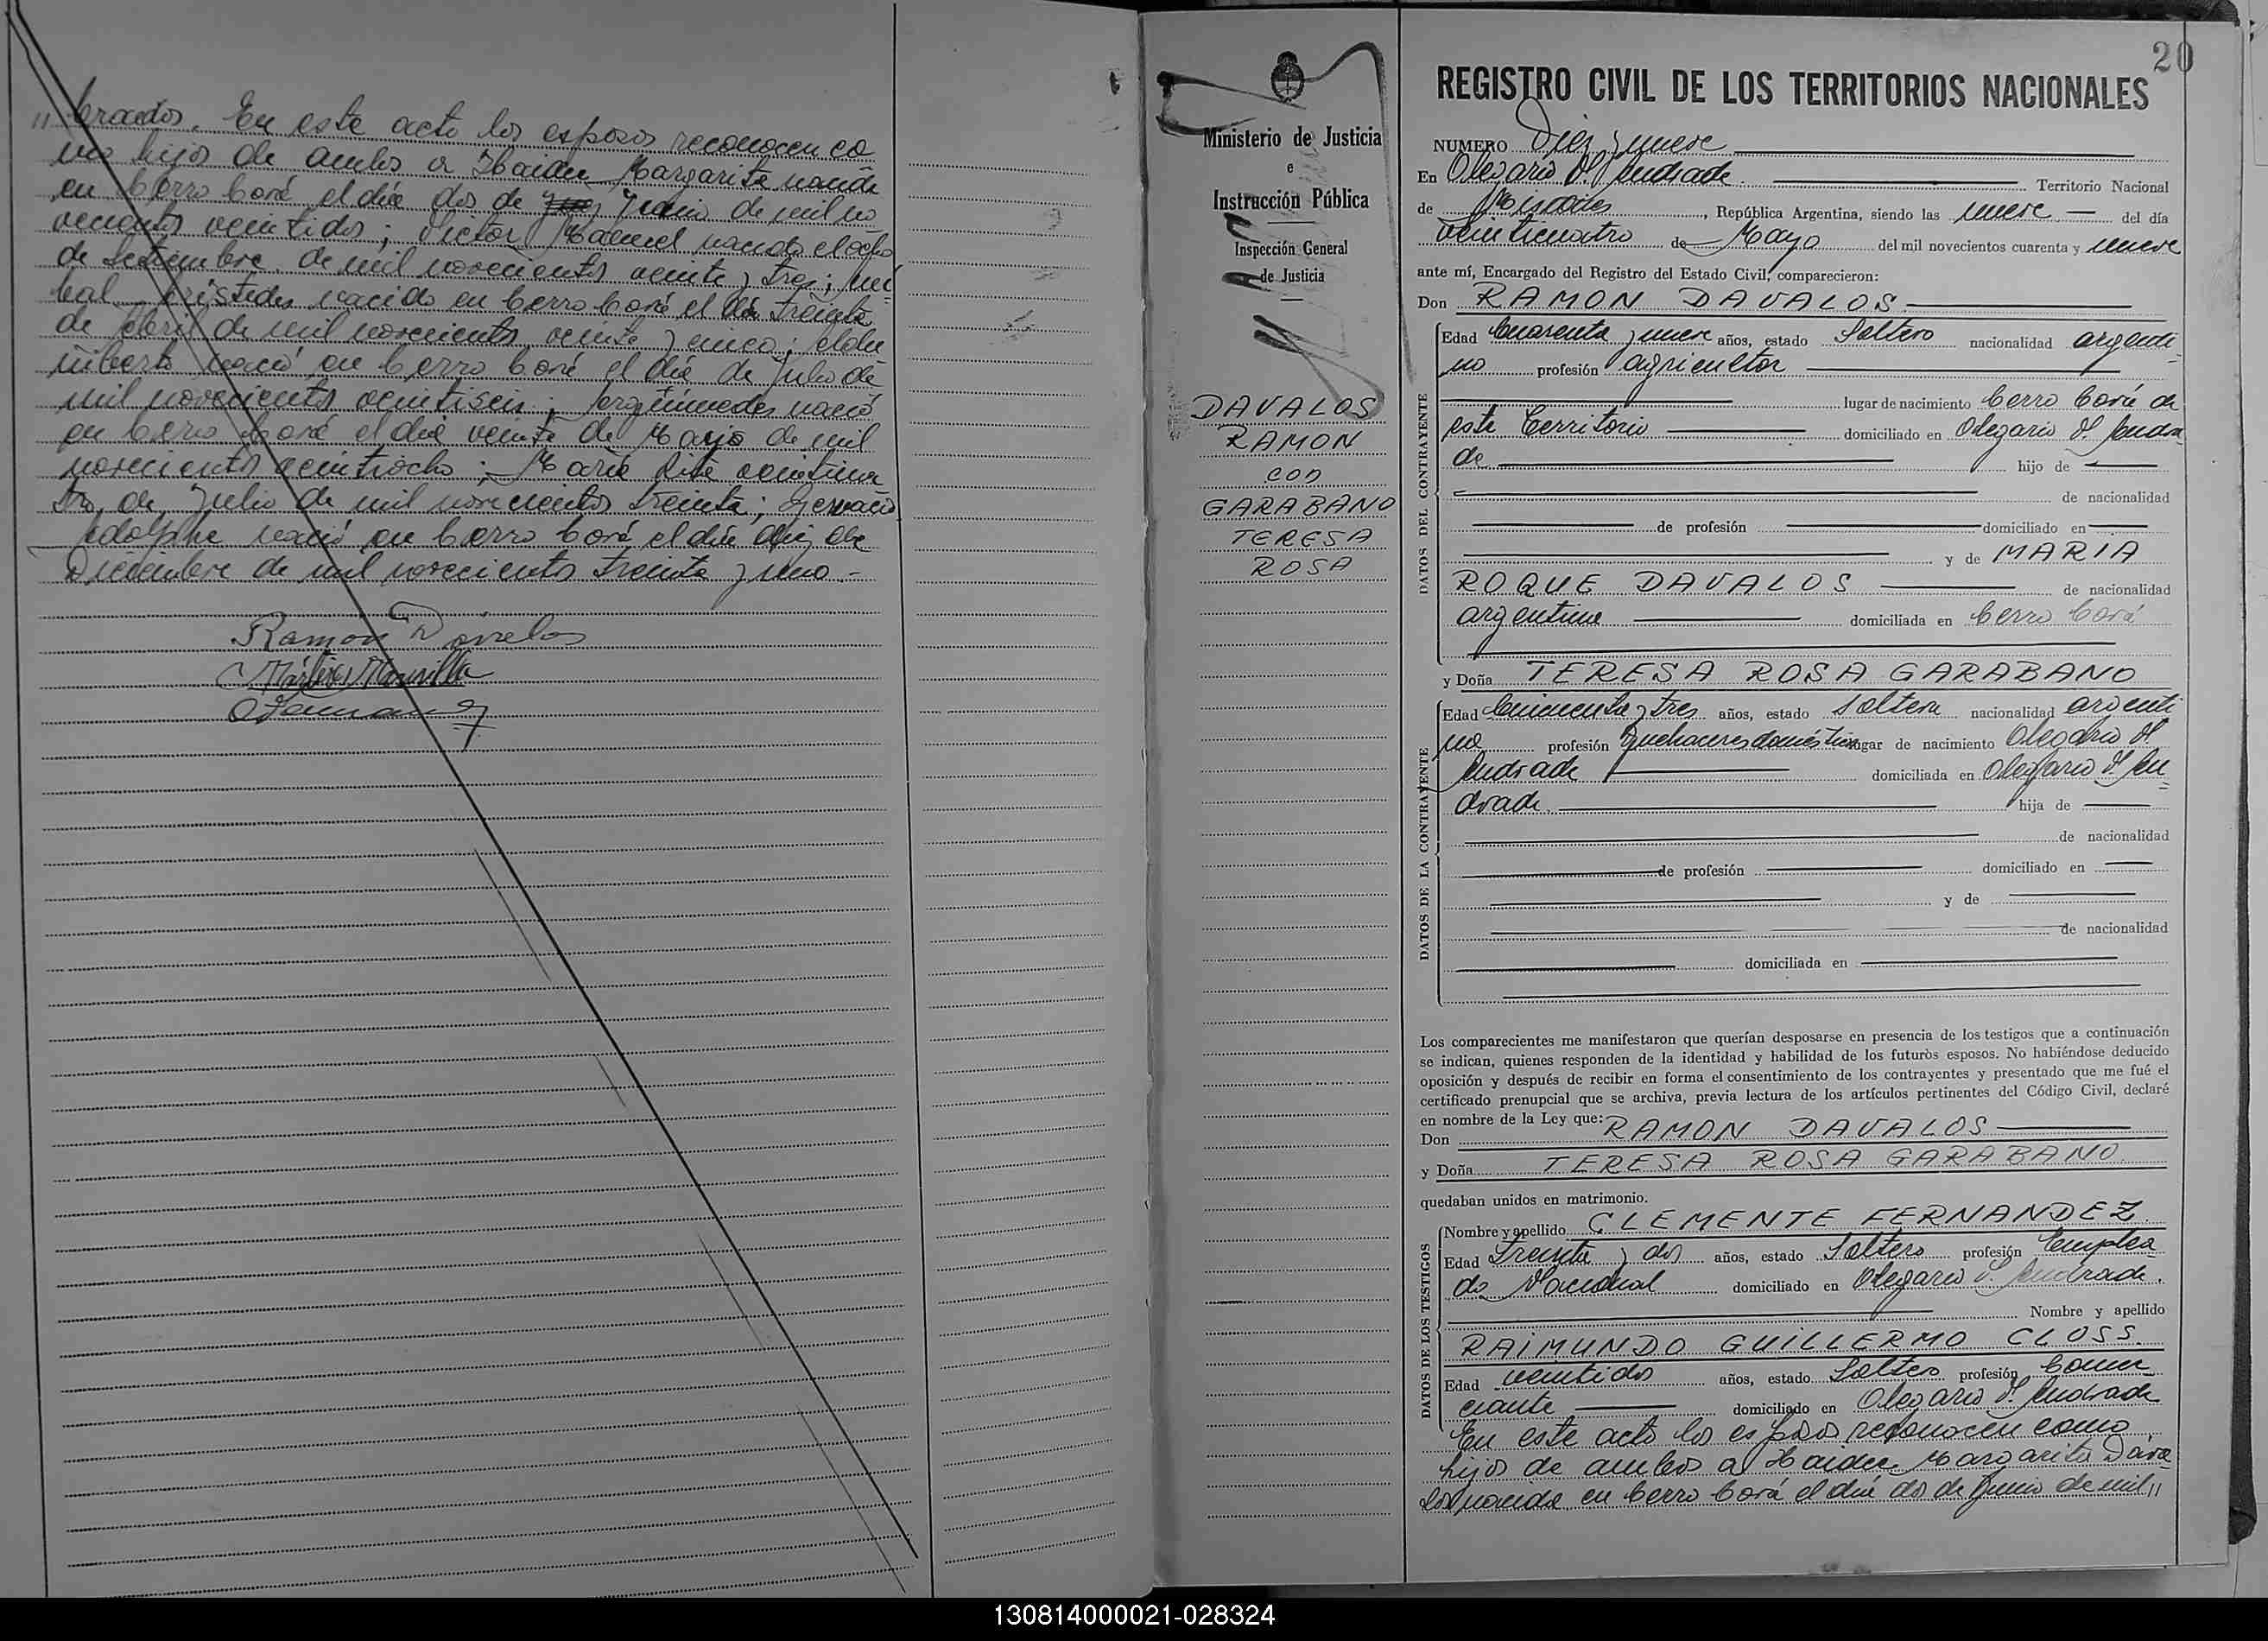 " brados. En este acto los esposos reconocen co
mo hijos de ambos a Haidee Margarita nacida
en Cerro Corá el día dos de Junio de mil no
vecientos veintidos; Victor Manuel nacido el ocho
de Setiembre de mil novecientos veinte y tres;
bal Aristedes nacido en Cerro Corá el día treinta
de Abril de mil novecientos veinte y cinco;
nació en Cerro Corá el día de Julio de
mil novecientos veintiseis; nació
en Cerro Corá el día veinte de Mayo de mil
novecientos veintiocho; María
tro de Julio de mil novecientos treinta;
nació en Cerro Corá el día diez de
Diciembre de mil novecientos treinta y uno -
Ramon Davalos
Mansilla
Ministerio de Justicia
e
Instrucción Pública
Inspección General
de Justicia
DAVALOS
RAMON
CON
GARABANO
TERESA
ROSA
20
REGISTRO CIVIL DE LOS TERRITORIOS NACIONALES
NUMERO Diez y nueve
En Olegario V. Andrade Territorio Nacional
de Misiones, República Argentina, siendo las nueve del día
veinticuatro de Mayo del mil novecientos cuarenta y nueve
ante mí, Encargado del Registro del Estado Civil, comparecieron:
Don RAMON DAVALOS
DATOS DEL CONTRAYENTE
Edad Cuarenta y nueve años, estado Soltero nacionalidad argenti
no profesión agricultor
lugar de nacimiento Cerro Corá de
este Territorio domiciliado en Olegario V. Andra
de hijo de
de nacionalidad
de profesión domiciliado en
y de MARIA
ROQUE DAVALOS de nacionalidad
argentina domiciliada en Cerro Corá
y Doña TERESA ROSA GARABANO
DATOS DE LA CONTRAYENTE
Edad Cincuenta y tres años, estado soltera nacionalidad argenti
na profesión Quehaceres domésticos lugar de nacimiento Olegario V.
Andrade domiciliada en Olegario V. An
drade hija de
de nacionalidad
de profesión domiciliado en
y de
de nacionalidad
domiciliada en
Los comparecientes me manifestaron que querían desposarse en presencia de los testigos que a continuación
se indican, quienes responden de la identidad y habilidad de los futuros esposos. No habiéndose deducido
oposición y después de recibir en forma el consentimiento de los contrayentes y presentado que me fué el
certificado prenupcial que se archiva, previa lectura de los artículos pertinentes del Código Civil, declaré
en nombre de la Ley que:
Don RAMON DAVALOS
y Doña TERESA ROSA GARABANO
quedaban unidos en matrimonio.
DATOS DE LOS TESTIGOS
Nombre y apellido CLEMENTE FERNANDEZ
Edad Treinta y dos años, estado Soltero profesión Emplea
do Nacional domiciliado en Olegario V. Andrade.
Nombre y apellido
RAIMUNDO GUILLERMO CLOSS.
Edad veintidos años, estado Soltero profesión Comer
ciante domiciliado en Olegario V. Andrade
En este acto los esposos reconocen como
hijos de ambos a Haidee Margarita Dava
los nacida en Cerro Corá el día dos de Junio de mil "
130814000021-028324